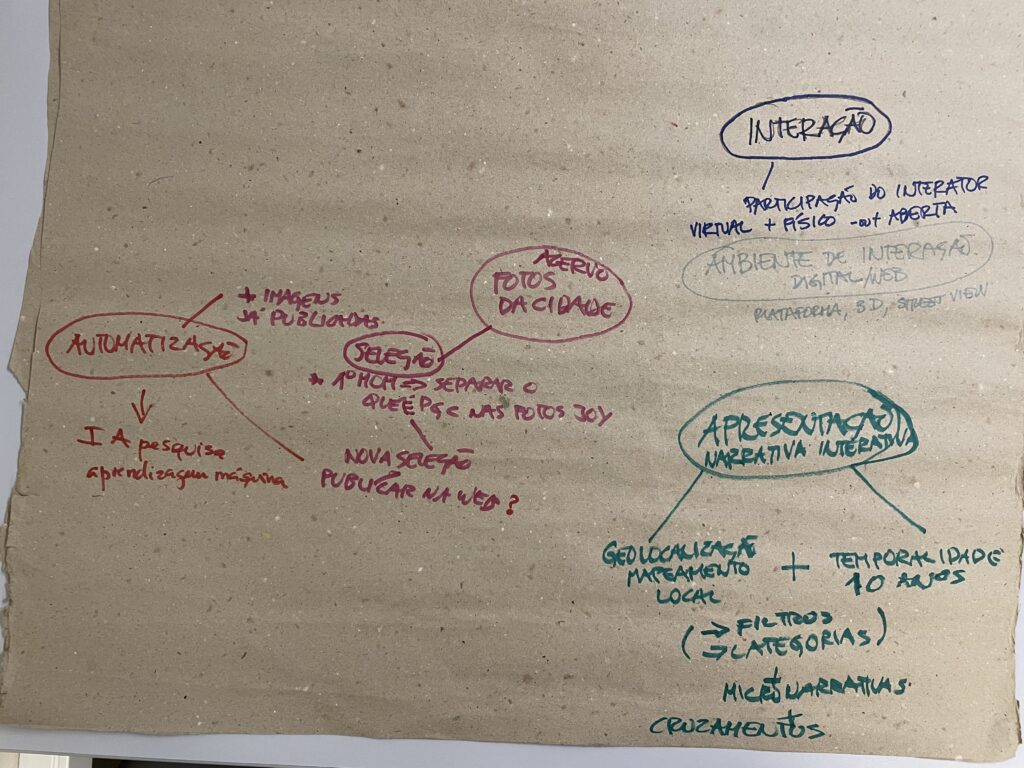 INTERAÇÃO
PARTICIPAÇÃO DO INTERATOR
VIRTUAL + FÍSICO ABERTA
AMBIENTE DE INTERAÇÃO
DIGITAL/WEB
PLATAFORMA, 3D, STREET VIEW
ACERVO
FOTOS
DA CIDADE
* IMAGENS
JÁ PUBLICADAS
AUTOMATIZAÇÃO
SELEÇÃO
* 1º HCM ⇒ SEPARAR O
QUE É NAS FOTOS JOY
NOVA SELEÇÃO
PUBLICAR NA WEB ?
I A pesquisa
aprendizagem máquina
APRESENTAÇÃO
NARRATIVA INTERATIVA
GEOLOCALIZAÇÃO
MAPEAMENTO
LOCAL
+
TEMPORALIDADE
10 ANOS
(→ FILTROS
→ CATEGORIAS)
+
MICRO NARRATIVAS
+
CRUZAMENTOS